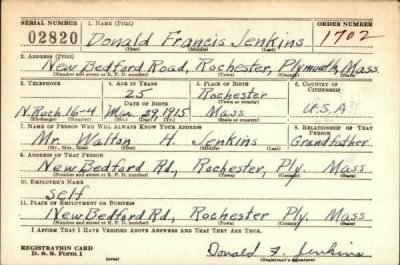 SERIAL NUMBER 1. NAME (Print) ORDER NUMBER
02820 Donald Francis Jenkins 1702
(First) (Middle) (Last)
2. ADDRESS (Print)
New Bedford Road, Rochester, Plymouth, Mass.
(Number and street or R. F. D. number) (Town) (County) (State)
3. TELEPHONE 4. AGE IN YEARS 5. PLACE OF BIRTH 6. COUNTRY OF CITIZENSHIP
25 Rochester
DATE OF BIRTH (Town or county)
N. Roch 16-4 Mar. 29, 1915 Mass U.S.A
(Exchange) (Number) (Mo.) (Day) (Yr.) (State or country)
7. NAME OF PERSON WHO WILL ALWAYS KNOW YOUR ADDRESS 8. RELATIONSHIP OF THAT PERSON
Mr. Walton H. Jenkins Grandfather
(Mr., Mrs., Miss) (First) (Middle) (Last)
9. ADDRESS OF THAT PERSON
New Bedford Rd, Rochester, Ply. Mass
(Number and street or R. F. D. number) (Town) (County) (State)
10. EMPLOYER'S NAME
Self
11. PLACE OF EMPLOYMENT OR BUSINESS
New Bedford Rd, Rochester Ply. Mass
(Number and street or R. F. D. number) (Town) (County) (State)
I AFFIRM THAT I HAVE VERIFIED ABOVE ANSWERS AND THAT THEY ARE TRUE.
REGISTRATION CARD
D. S. S. Form 1
Donald F. Jenkins
(Registrant's signature)